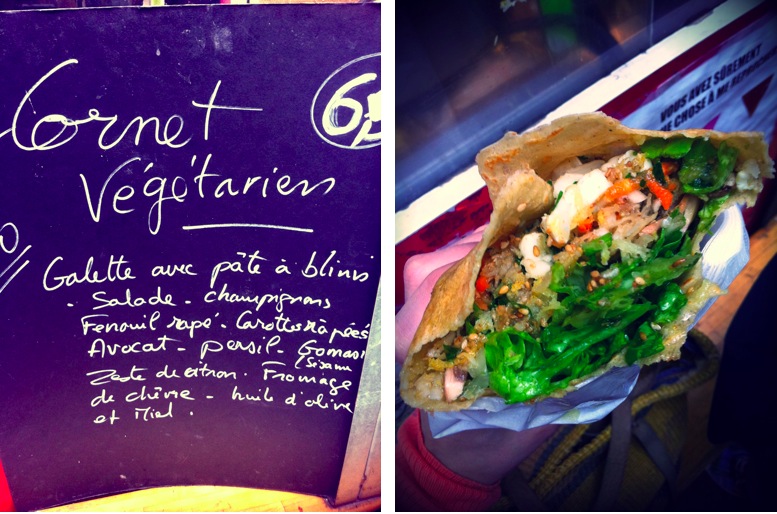 Cornet
6,5
Végétarien
Galette avec pâte à blinis
. Salade - champignons
Fenouil rapé - Carottes rapées
Avocat - persil - Gomasi
(Sisam
Zeste de citron . Fromage
de chèvre - huile d'olive
et Miel .
VOUS AVEZ SÛREMENT
CHOSE À ME REPROCHER